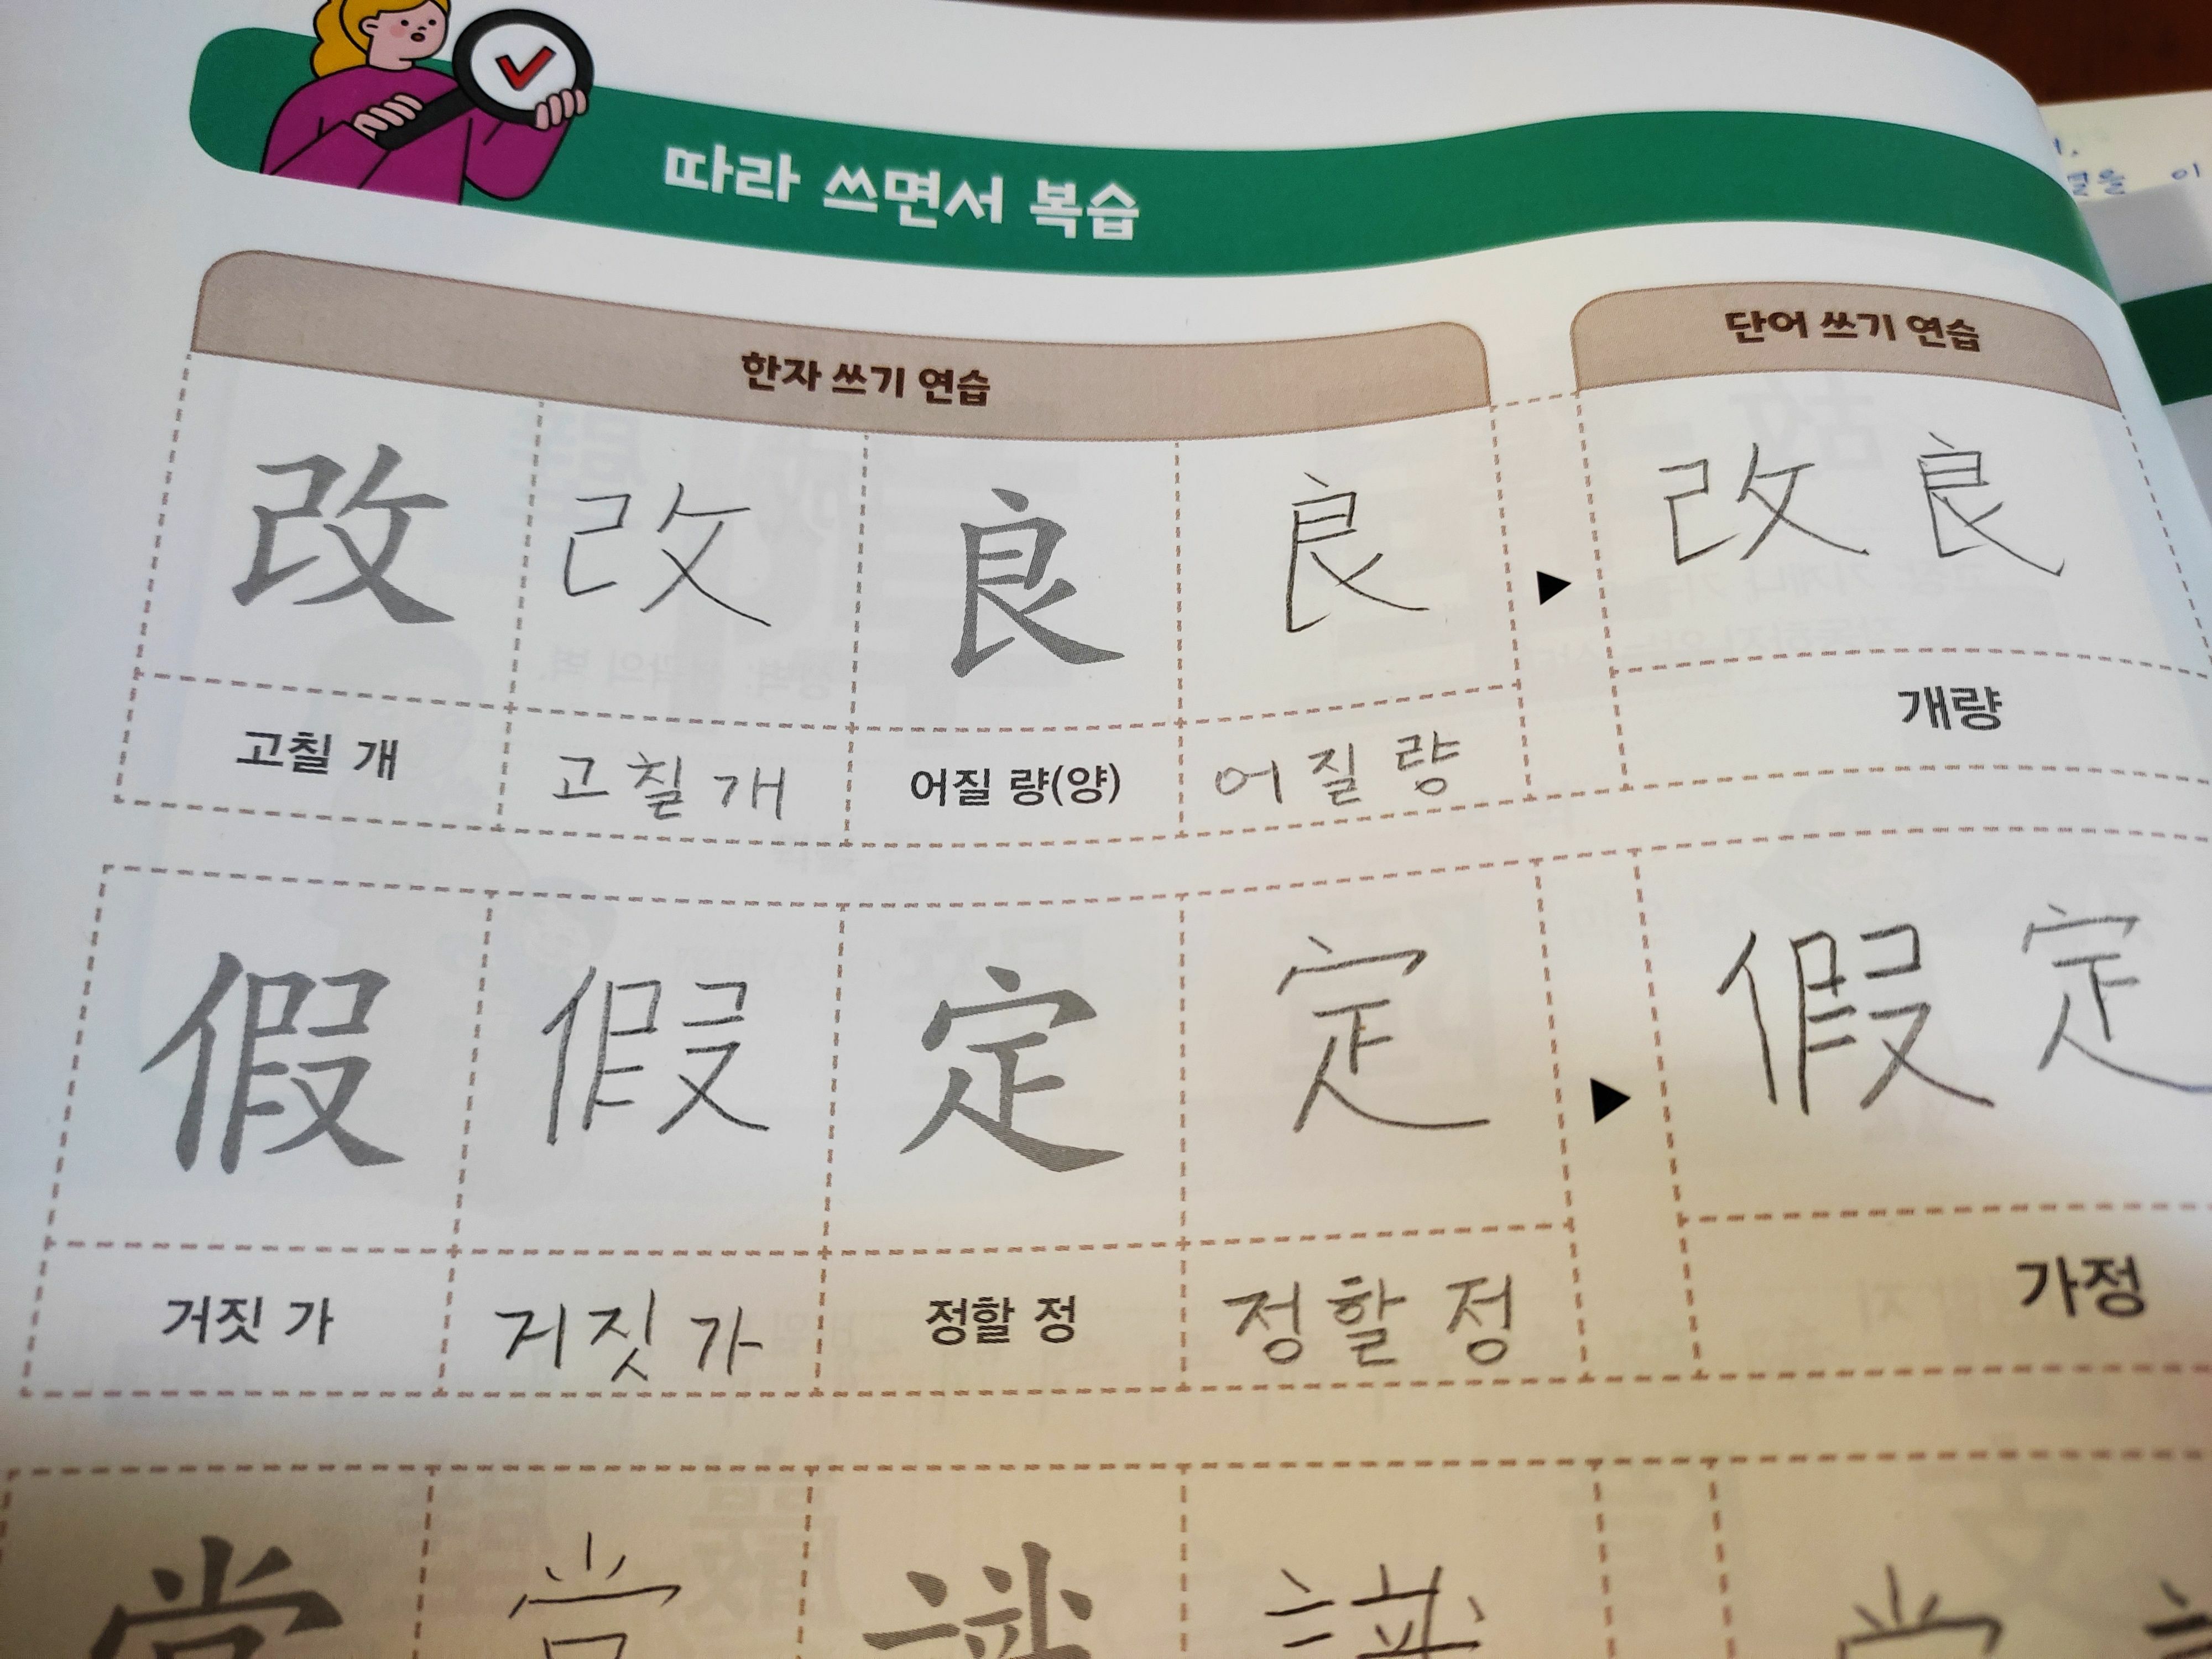 따라 쓰면서 복습
한자 쓰기 연습 단어 쓰기 연습
改 改 良 良 ▶ 改良
고칠 개 고칠 개 어질 량(양) 어질 량 개량
假 假 定 定 ▶ 假定
거짓 가 거짓 가 정할 정 정할 정 가정